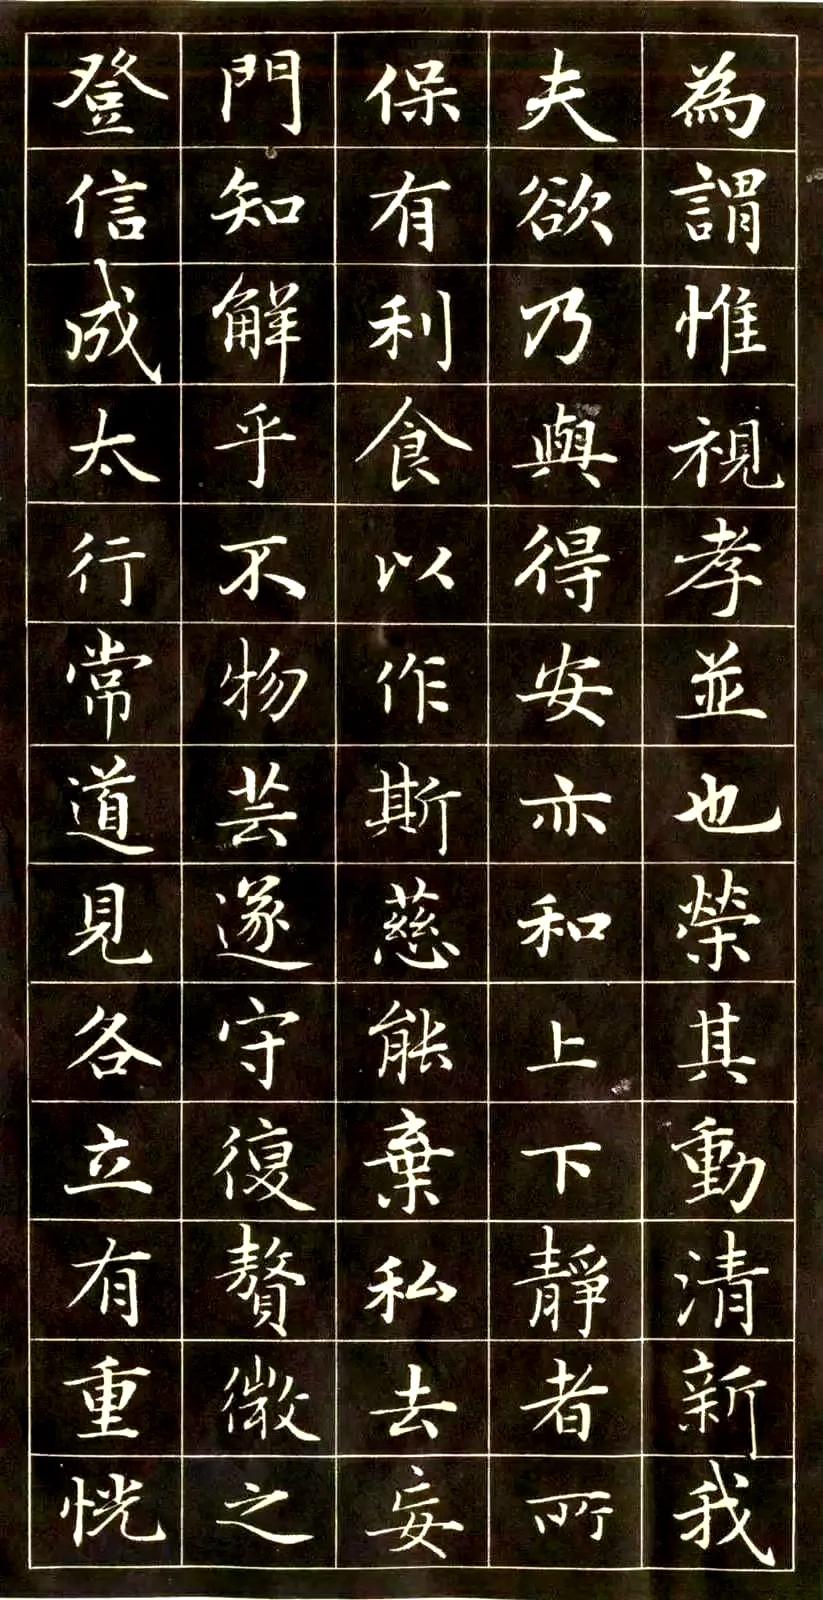 為謂惟視孝並也榮其動清新我
夫欲乃與得安亦和上下靜者所
保有利食以作斯慈能棄私去妄
門知解乎不物芸遂守復贅徼之
登信成太行常道見各立有重恍